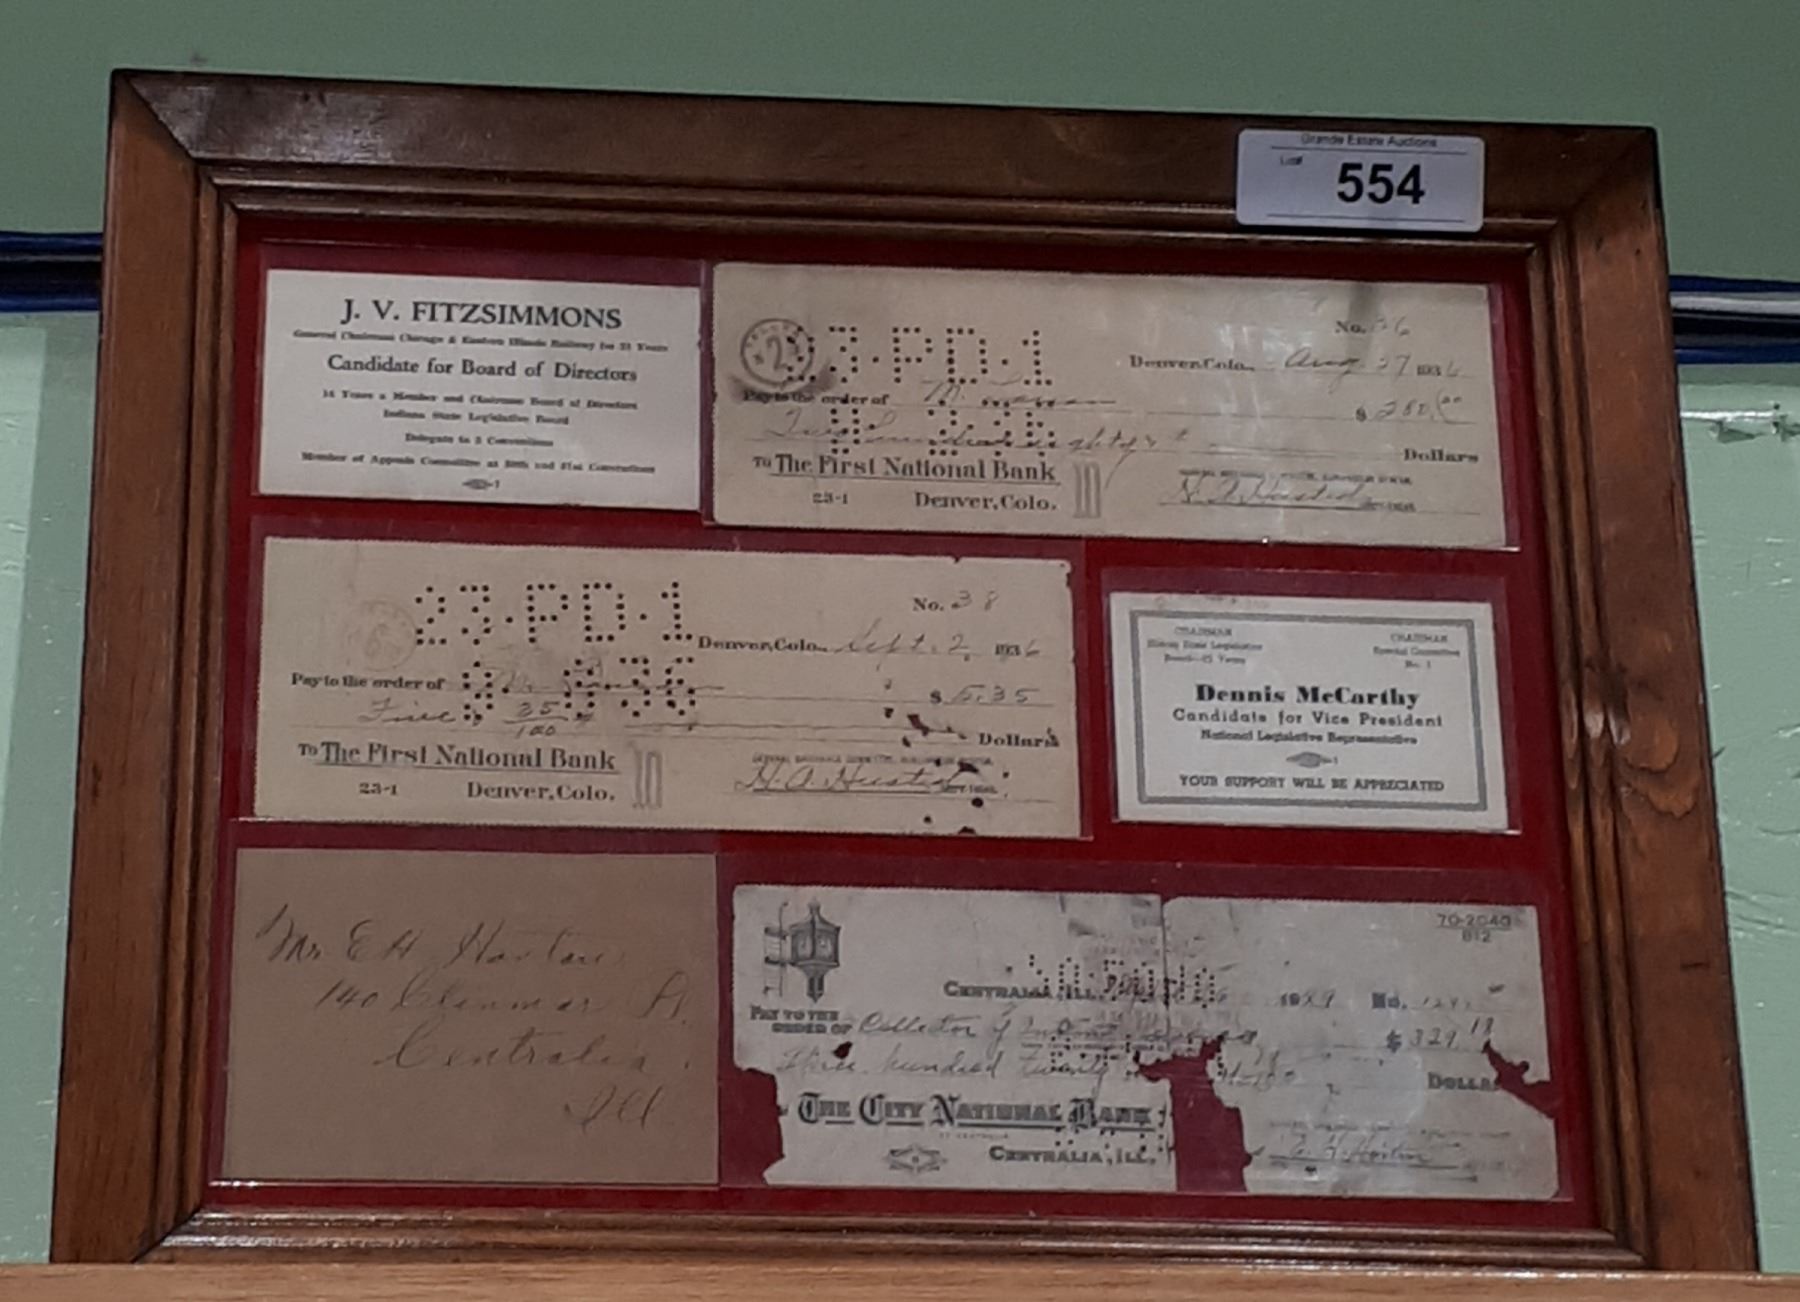 Grande Estate Auctions
Lot# 554
J. V. FITZSIMMONS
General Chairman Chicago & Eastern Illinois Railway for 21 Years
Candidate for Board of Directors
14 Years a Member and Chairman Board of Directors
Indiana State Legislative Board
Delegate to 5 Conventions
Member of Appeals Committee at 50th and 51st Conventions
No. 36
23·PD·1
Denver, Colo., Aug. 27 1936
Pay to the order of M.
$ 280.00
Two Hundred eighty &
Dollars
To The First National Bank
23-1 Denver, Colo.
23·PD·1
No. 38
Denver, Colo., Sept. 2, 1936
Pay to the order of
9- 36
$ 5.35
Five 35/100
Dollars
To The First National Bank
23-1 Denver, Colo.
H. A. Husted
CHAIRMAN
Illinois State Legislative
Board—15 Years
CHAIRMAN
Special Committee
No. 1
Dennis McCarthy
Candidate for Vice President
National Legislative Representative
YOUR SUPPORT WILL BE APPRECIATED
Mr. E H Horton
140
Centralia
Ill
70-2040
812
CENTRALIA, ILL. 1929 No.
PAY TO THE ORDER OF Collector of
$ 329.
Three hundred twenty
DOLLA
THE CITY NATIONAL BANK
OF CENTRALIA
CENTRALIA, ILL.
E. H. Horton